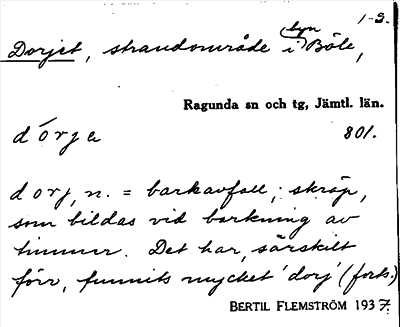 1-2.
Dorjet, strandområde i byn Böle,
Ragunda sn och tg, Jämtl. län.
dórje 801.
dorj, n. = barkavfall, skräp,
som bildas vid barkning av
timmer. Det har, särskilt
förr, funnits mycket 'dorj' (forts.)
BERTIL FLEMSTRÖM 1937.